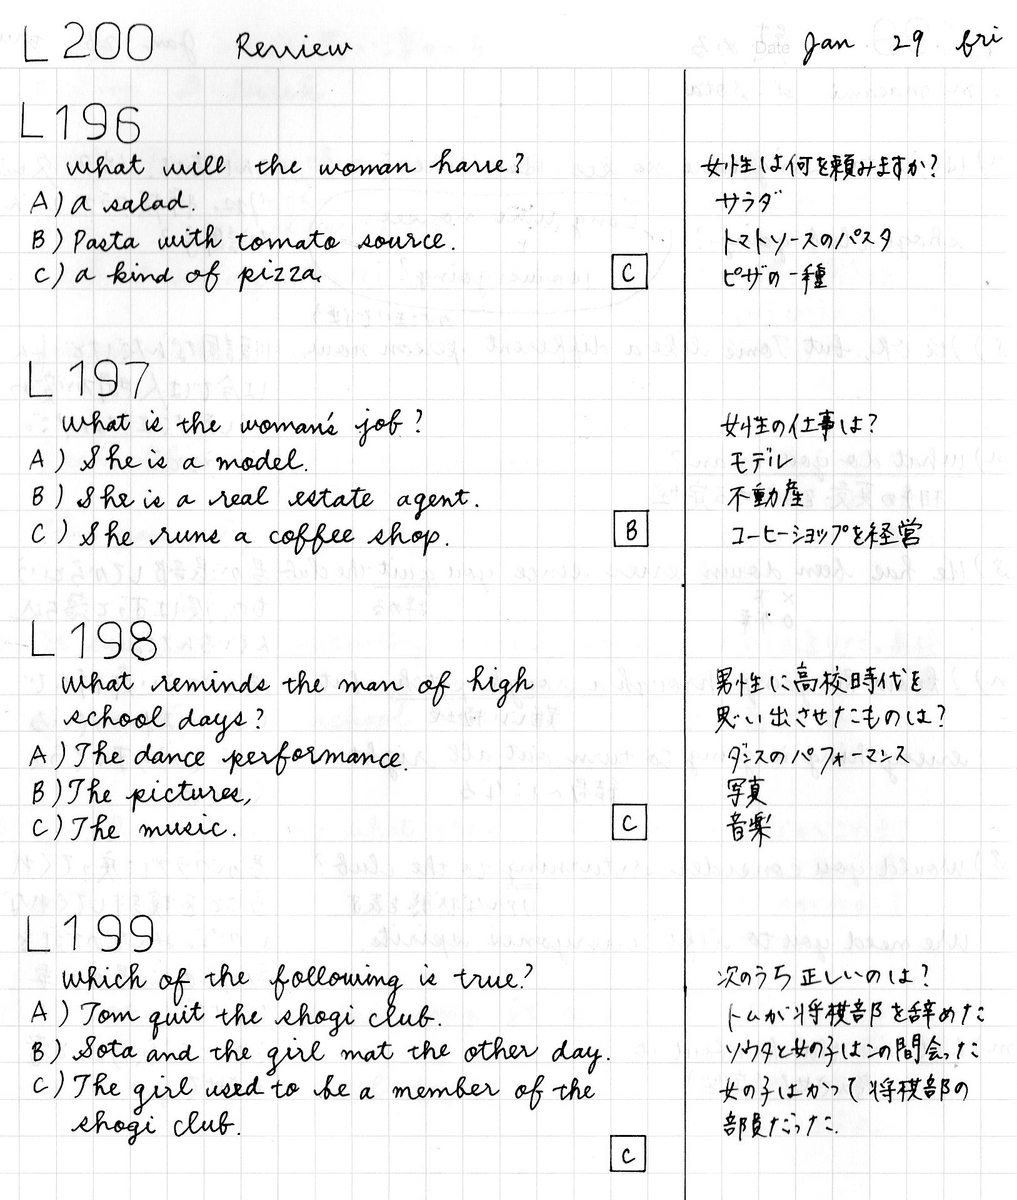 L 200 Review Date Jan 29 fri
L196
what will the woman have? 女性は何を頼みますか?
A) a salad. サラダ
B) Pasta with tomato source. トマトソースのパスタ
C) a kind of pizza. C ピザの一種
L197
what is the woman's job? 女性の仕事は?
A) She is a model. モデル
B) She is a real estate agent. 不動産
C) She runs a coffee shop. B コーヒーショップを経営
L198
what reminds the man of high 男性に高校時代を
school days? 思い出させたものは?
A) The dance performance. ダンスのパフォーマンス
B) The pictures, 写真
C) The music. C 音楽
L199
which of the following is true? 次のうち正しいのは?
A) Tom quit the shogi club. トムが将棋部を辞めた
B) Sota and the girl mat the other day. ソウタと女の子はこの間会った
C) The girl used to be a member of the 女の子はかつて将棋部の
shogi club. 部員だった.
C